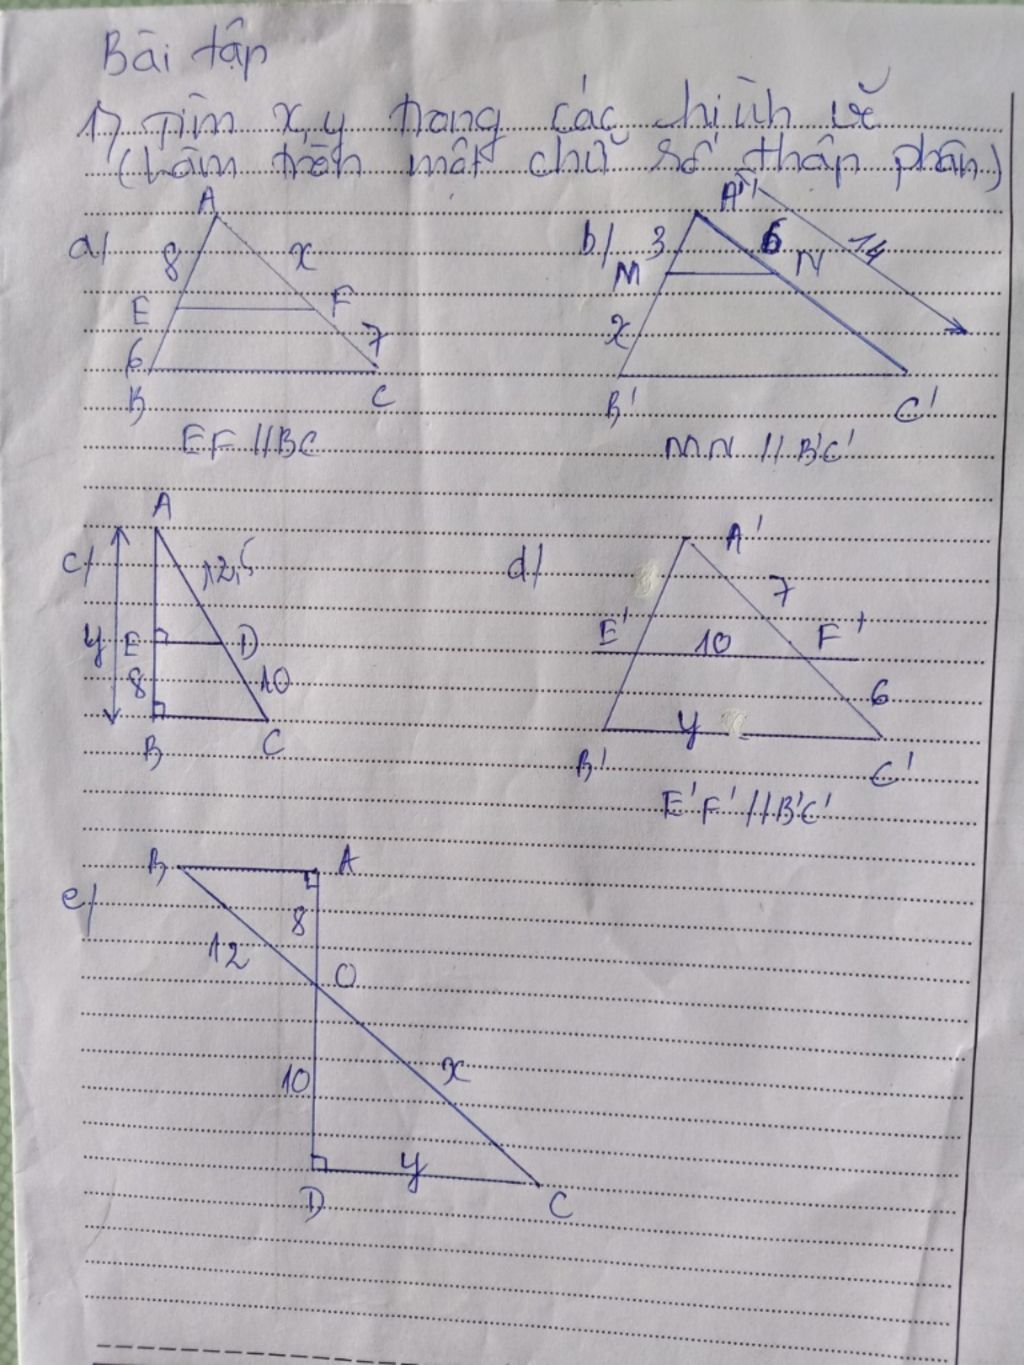 Bài tập
1) Tìm x, y trong các hình vẽ
(Làm tròn một chữ số thập phân)
a/
A
8
x
E
F
6
7
B
C
EF // BC
b/
A'
3
6
14
M
N
x
B'
C'
MN // B'C'
c/
A
12,5
y
E
D
8
10
B
C
d/
A'
7
E'
10
F'
6
y
B'
C'
E'F' // B'C'
e/
B
A
8
12
O
10
x
y
D
C